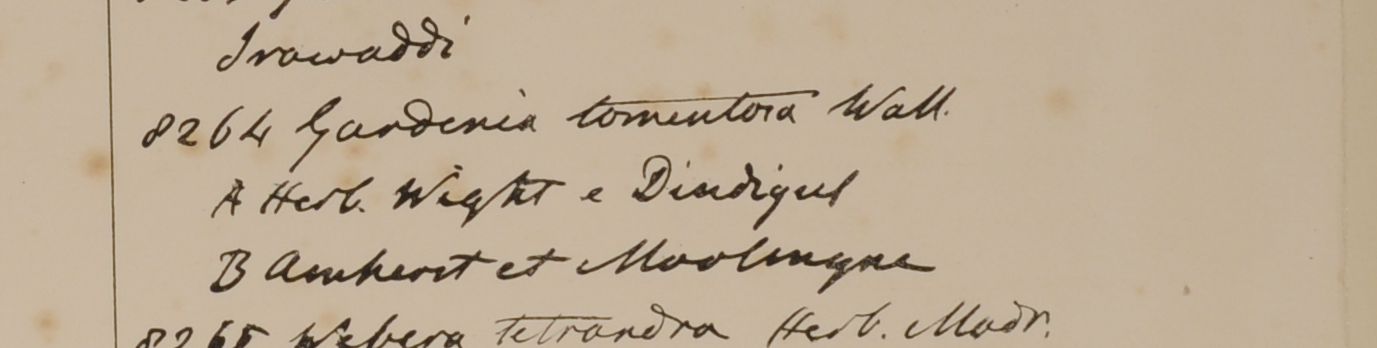 Irawaddi
8264 Gardenia tomentosa Wall.
A Herb. Wight e Dindigul
B Amherst et Moolmyne
8265 Webera tetrandra Herb. Madr.